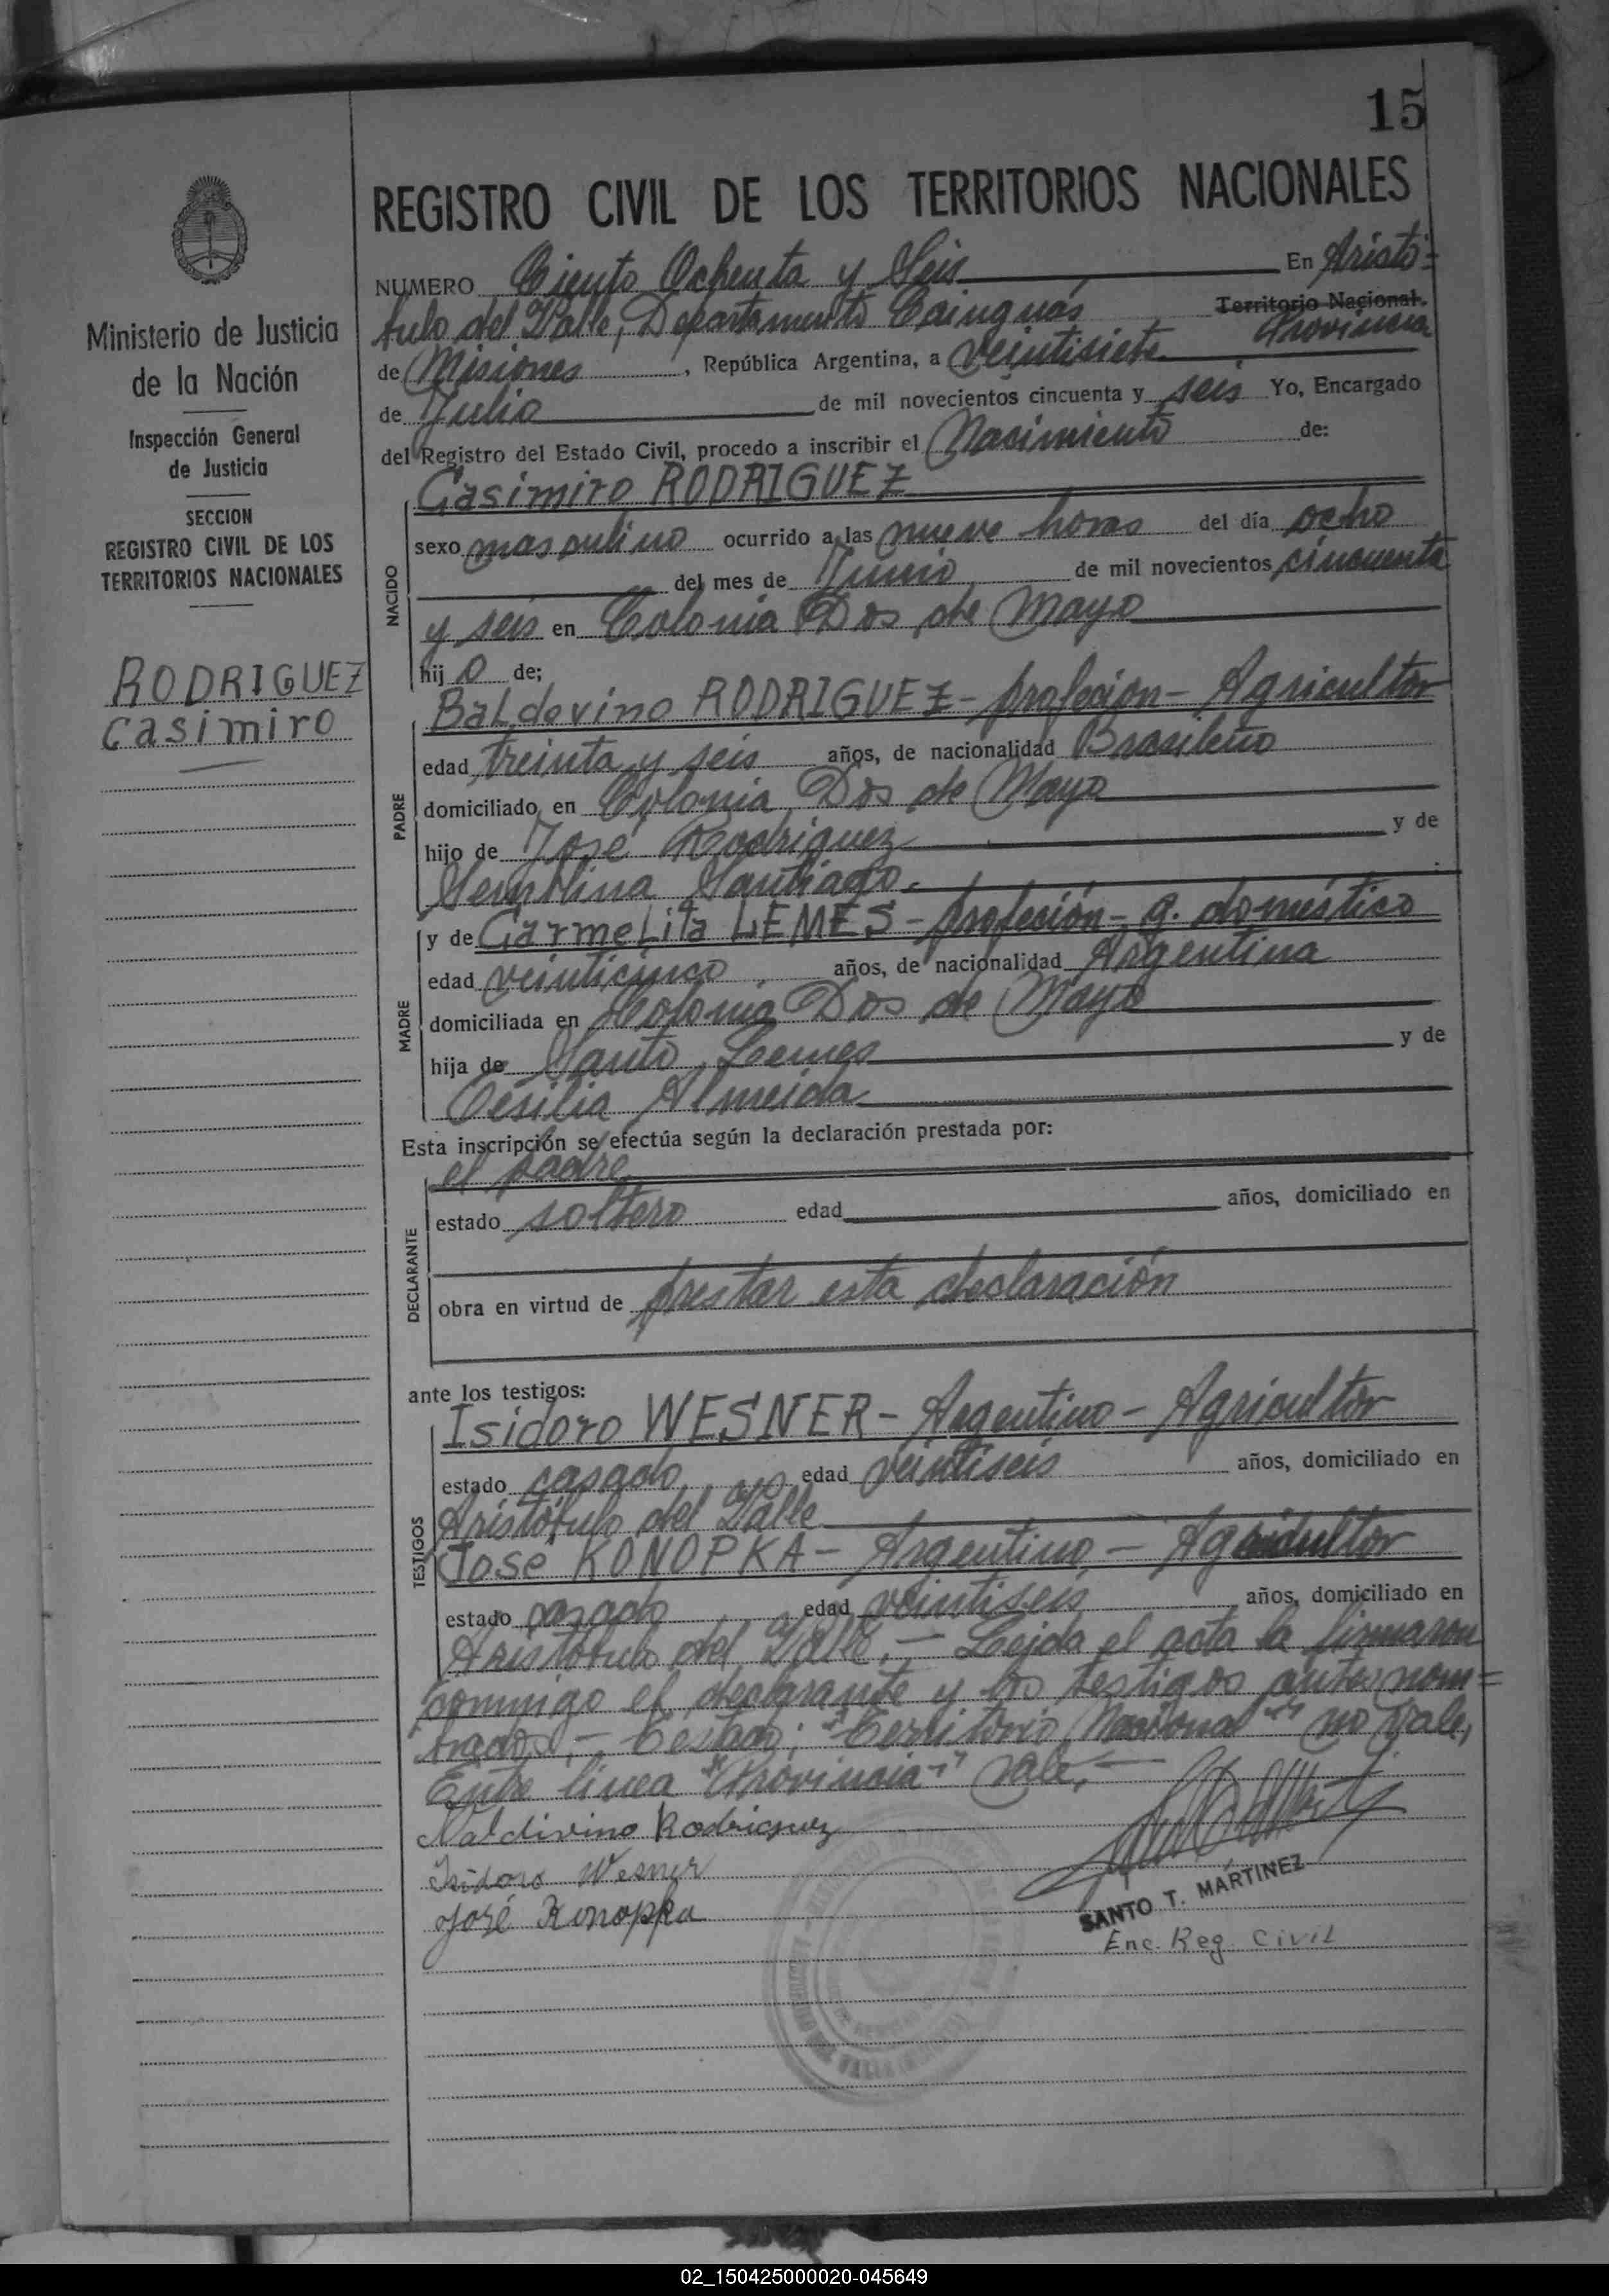 15
REGISTRO CIVIL DE LOS TERRITORIOS NACIONALES
NUMERO Ciento Ochenta y Seis En Aristó=
bulo del Valle, Departamento Cainguás Territorio Nacional.
Provincia
de Misiones, República Argentina, a veintisiete
de Julio de mil novecientos cincuenta y seis Yo, Encargado
del Registro del Estado Civil, procedo a inscribir el Nacimiento de:
Ministerio de Justicia
de la Nación
Inspección General
de Justicia
SECCION
REGISTRO CIVIL DE LOS
TERRITORIOS NACIONALES
RODRIGUEZ
Casimiro
NACIDO
Casimiro RODRIGUEZ
sexo masculino ocurrido a las nueve horas del día ocho
del mes de Junio de mil novecientos cincuenta
y seis en Colonia Dos de Mayo
hij o de;
PADRE
Baldovino RODRIGUEZ - profesión - Agricultor
edad treinta y seis años, de nacionalidad Brasileño
domiciliado en Colonia Dos de Mayo
hijo de José Rodriguez y de
Santiago.
MADRE
y de Carmelita LEMES - profesión - q. doméstico
edad veinticinco años, de nacionalidad Argentina
domiciliada en Colonia Dos de Mayo
hija de Santo Lemes y de
Cesilia Almeida
Esta inscripción se efectúa según la declaración prestada por:
DECLARANTE
el padre
estado soltero edad años, domiciliado en
obra en virtud de prestar esta declaración
ante los testigos:
TESTIGOS
Isidoro WESNER - Argentino - Agricultor
estado casado edad veintiseis años, domiciliado en
Aristóbulo del Valle
José KONOPKA - Argentino - Agricultor
estado casado edad veintiseis años, domiciliado en
Aristóbulo del Valle, - Leida el acta la firmaron
conmigo el declarante y los testigos antes nom=
brados, - Testado: "Territorio Nacional" no vale,
Entre linea "Provincia" vale, -
Valdivino Rodriguez
Isidoro Wesner
José Konopka
SANTO T. MARTINEZ
Enc. Reg. Civil
02_150425000020-045649